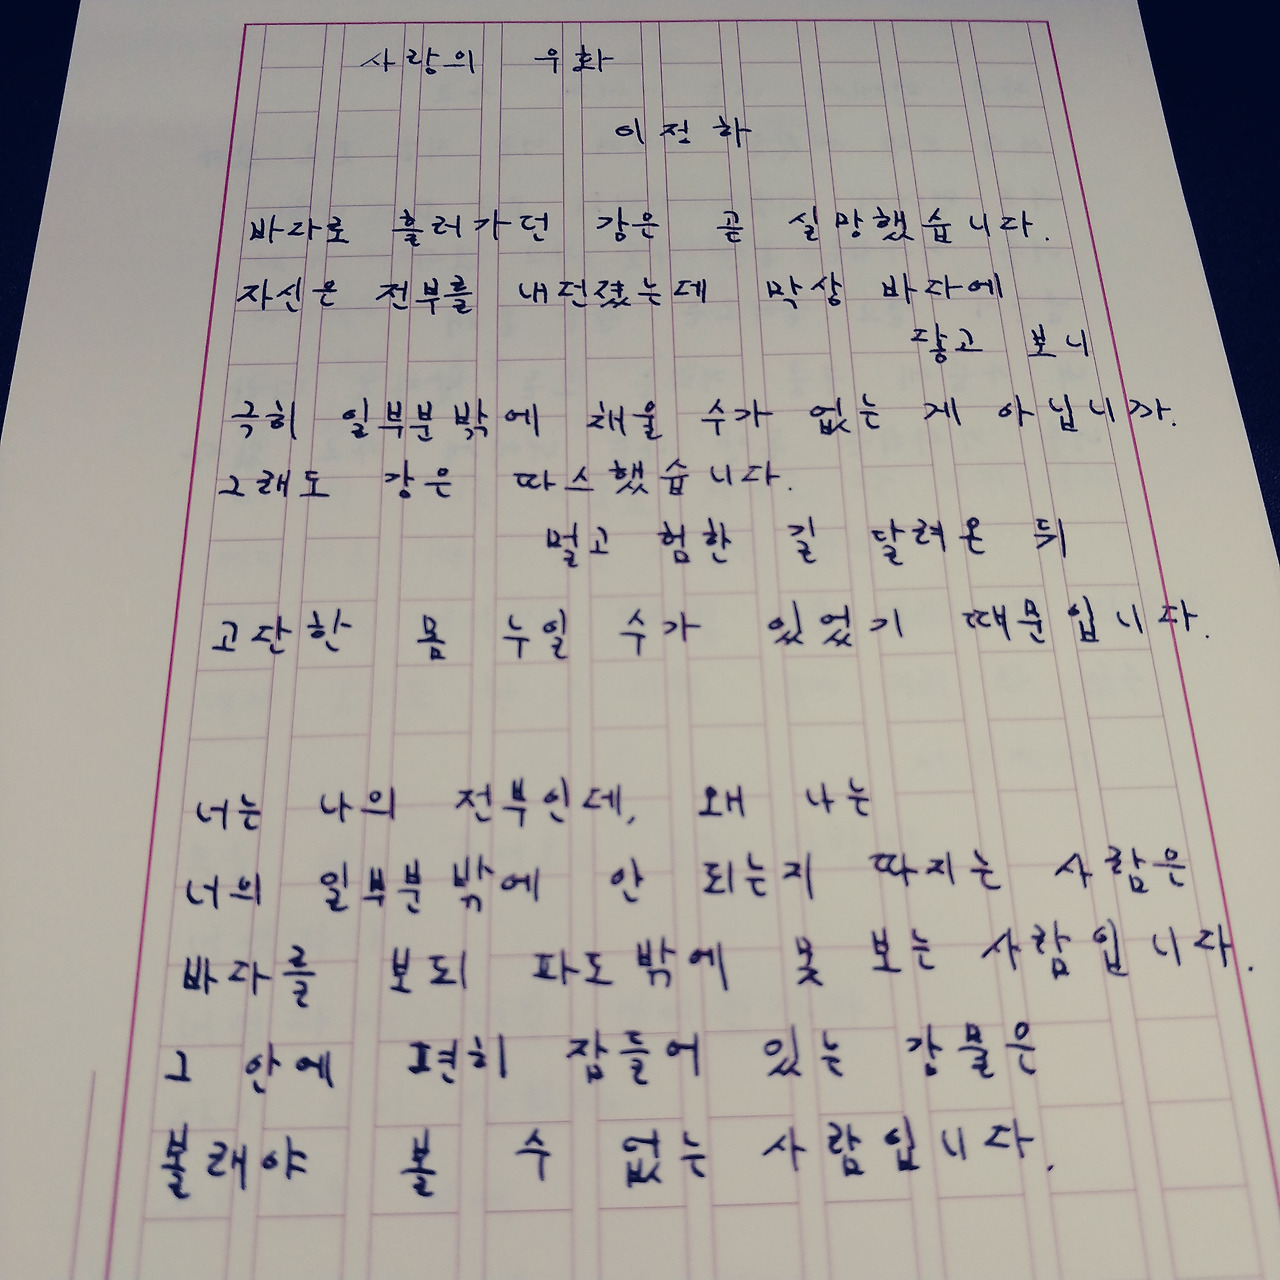 사랑의 우화
이정하
바다로 흘러가던 강은 곧 실망했습니다.
자신은 전부를 내던졌는데 막상 바다에
닿고 보니
극히 일부분밖에 채울 수가 없는 게 아닙니까.
그래도 강은 따스했습니다.
멀고 험한 길 달려온 뒤
고단한 몸 누일 수가 있었기 때문입니다.
너는 나의 전부인데, 왜 나는
너의 일부분밖에 안 되는지 따지는 사람은
바다를 보되 파도밖에 못 보는 사람입니다.
그 안에 편히 잠들어 있는 강물은
볼래야 볼 수 없는 사람입니다.